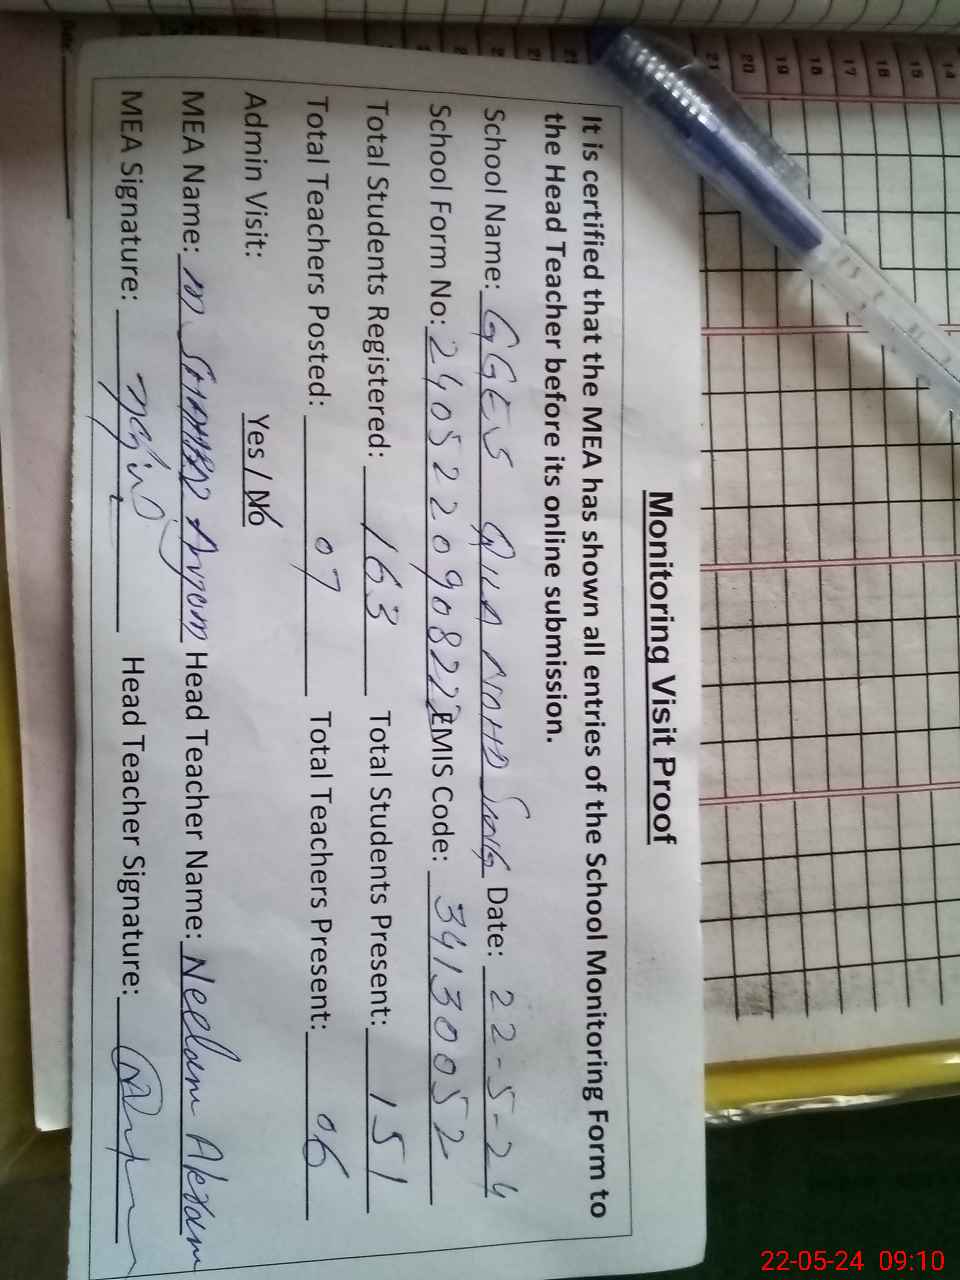 Monitoring Visit Proof
It is certified that the MEA has shown all entries of the School Monitoring Form to
the Head Teacher before its online submission.
School Name: GGES QILA NAHD SING Date: 22-5-24
School Form No: 2405220908222 EMIS Code: 34130052
Total Students Registered: 163 Total Students Present: 151
Total Teachers Posted: 07 Total Teachers Present: 06
Admin Visit: Yes / No
MEA Name: M Head Teacher Name: Neelam Akram
MEA Signature: Head Teacher Signature:
21 20 19 18 17 16 15 14
22-05-24 09:10